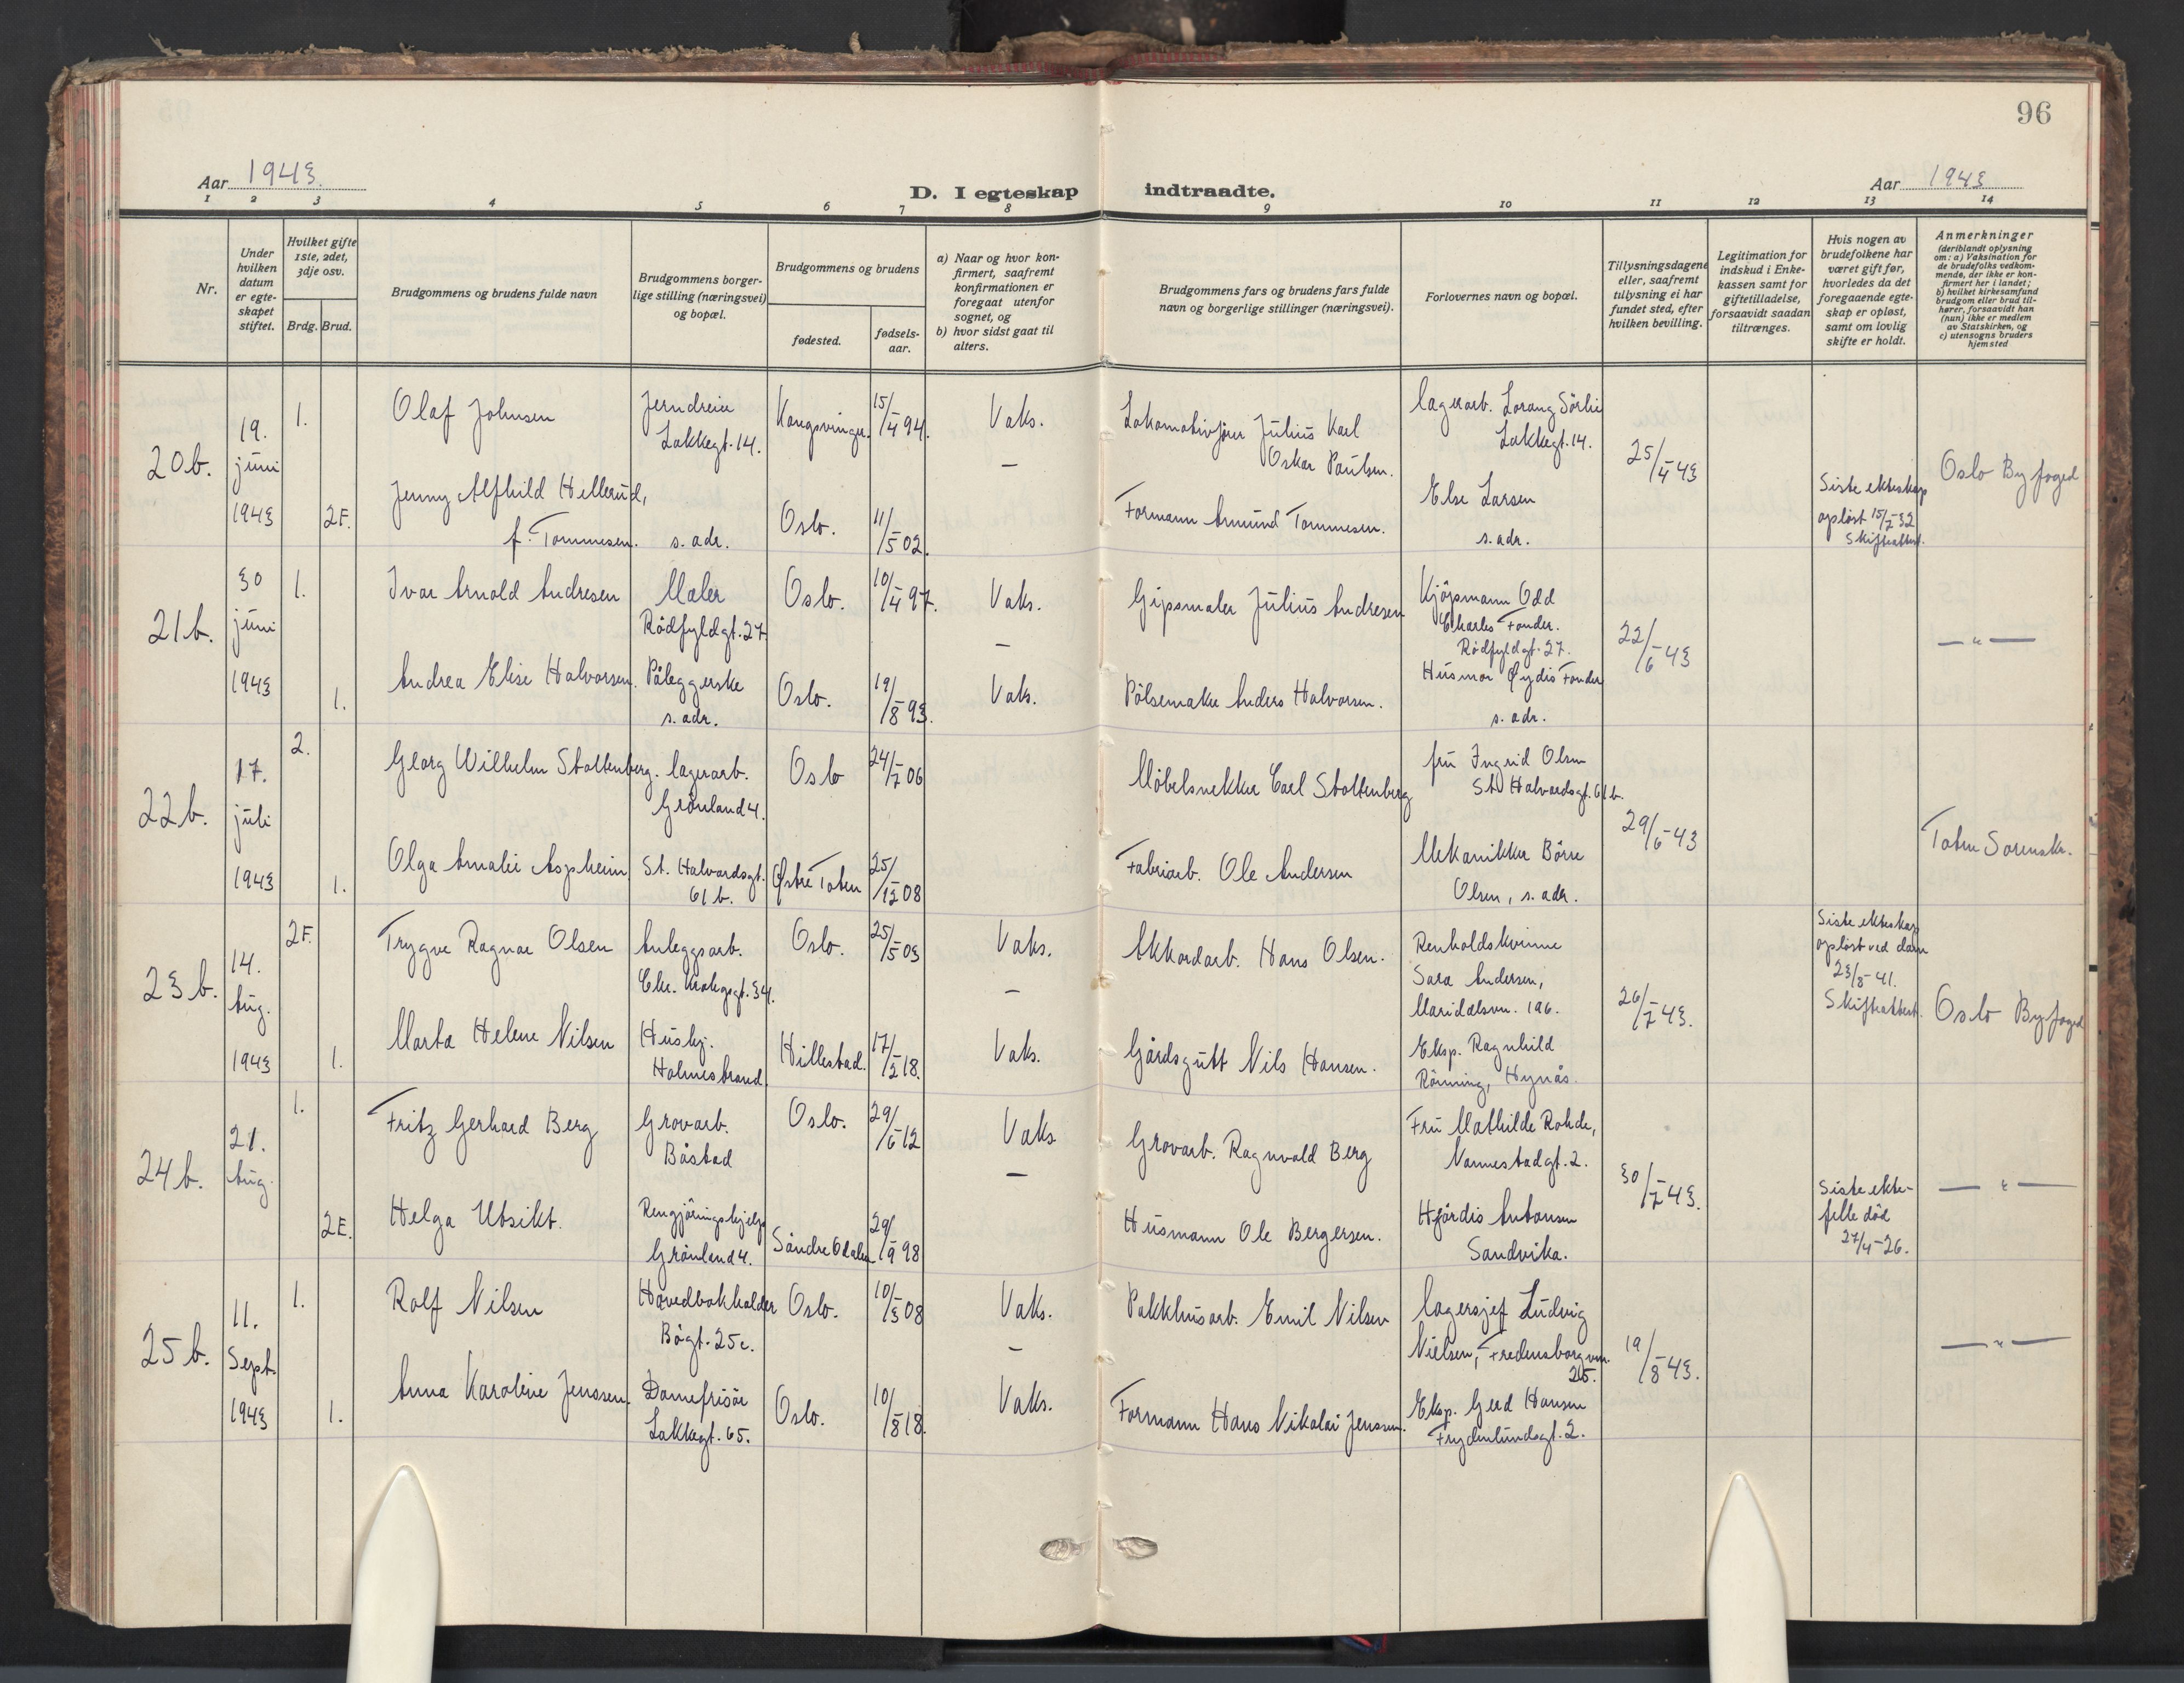 96
Aar 1943.
D. I egteskap indtraadte.
Aar 1943
1 2 3 4 5 6 7 8 9 10 11 12 13 14
Nr.
Under hvilken datum er egte-skapet stiftet.
Hvilket gifte 1ste, 2det, 3dje osv.
Brdg. Brud.
Brudgommens og brudens fulde navn
Brudgommens borger-lige stilling (næringsvei) og bopæl.
Brudgommens og brudens
fødested.
fødsels-aar.
a) Naar og hvor kon-firmert, saafremt konfirmationen er foregaat utenfor sognet, og
b) hvor sidst gaat til alters.
Brudgommens fars og brudens fars fulde navn og borgerlige stillinger (næringsvei).
Forlovernes navn og bopæl.
Tillysningsdagene eller, saafremt tillysning ei har fundet sted, efter hvilken bevilling.
Legitimation for indskud i Enke-kassen samt for giftetilladelse, forsaavidt saadan tiltrænges.
Hvis nogen av brudefolkene har været gift før, hvorledes da det foregaaende egte-skap er opløst, samt om lovlig skifte er holdt.
Anmerkninger
(deriblandt oplysning om: a) Vaksination for de brudefolks vedkom-mende, der ikke er kon-firmert her i landet; b) hvilket kirkesamfund brudgom eller brud til-hører, forsaavidt han (hun) ikke er medlem av Statskirken, og c) utensogns bruders hjemsted
20b.
19. juni 1943
1.
Olaf Johnsen
Jerndreier
Lakkegt. 14.
Kongsvinger.
15/4 94.
Vaks.
—
Lokomotivfører Julius Karl
Oskar Paulsen.
lagerarb. Lorang Sörlie
Lakkegt. 14.
25/4-43
Oslo Byfoged
2F.
Jenny Alfhild Hellerud,
f. Tommesen.
s. adr.
Oslo.
11/5 02.
Formann Amund Tommesen.
Else Larsen
s. adr.
Siste ekteskap
opløst 15/7-32
Skifteattest.
21b.
30 juni 1943
1.
Ivar Arnold Andresen
Maler
Rödfyldgt. 27
Oslo.
10/4 97.
Vaks.
—
Gipsmaler Julius Andresen
Kjöpmann Odd
Charles Fonder.
Rödfyldgt. 27.
22/6-43
— " —
1.
Andrea Elise Halvorsen.
Påleggerske
s. adr.
Oslo.
19/8 93.
Vaks.
Pölsemaker Anders Halvorsen.
Husmor Øydis Fonder
s. adr.
22b.
17. juli 1943
2.
Georg Wilhelm Stoltenberg.
lagerarb.
Grönland 4.
Oslo
24/7 06
Möbelsnekker Carl Stoltenberg
fru Ingrid Olsen
St. Halvardsgt. 61b.
29/6-43
Toten Sorenskr.
1.
Olga Amalie Aspheim
St. Halvardsgt.
61 b.
Østre Toten
25/12 08
Fabrikarb. Ole Andersen
Mekanikker Börre
Olsen, s. adr.
23b.
14. Aug. 1943
2F.
Trygve Ragnar Olsen
Anleggsarb.
Chr. Krohgsgt. 34.
Oslo.
25/5 03
Vaks.
—
Akkordarb. Hans Olsen.
Renholdskvinne
Sara Andersen,
Maridalsvn. 196.
26/7-43.
Siste ekteskap
opløst ved dom
23/8-41.
Skifteattest.
Oslo Byfoged
1.
Marta Helene Nilsen
Hushj.
Holmestrand
Hillestad.
17/2 18.
Vaks.
Gårdsgutt Nils Hansen.
Eksp. Ragnhild
Rönning, Hynås.
24b.
21. Aug.
1.
Fritz Gerhard Berg
Grovarb.
Båstad
Oslo.
29/6 12
Vaks
—
Grovarb. Ragnvald Berg
Fru Mathilde Rohde,
Nannestadgt. 2.
30/7-43.
— " —
2E.
Helga Utsikt.
Rengjöringshjelp
Grönland 4.
Söndre Odalen
29/9 98
Husmann Ole Bergersen.
Hjördis Antonsen
Sandvika.
Siste ekte-
felle död
27/4-26.
25b.
11. Sept. 1943
1.
Rolf Nilsen
Hovedbokholder
Bögt. 25c.
Oslo.
10/3 08
Vaks.
—
Pakkhusarb. Emil Nilsen
lagersjef Ludvig
Nielsen, Fredensborgvn.
26.
19/8-43.
— " —
1.
Anna Karoline Jenssen.
Damefrisör
Lakkegt. 65.
Oslo.
10/8 18.
Vaks.
Formann Hans Nikolai Jenssen.
Eksp. Gerd Hansen
Frydenlundsgt. 2.